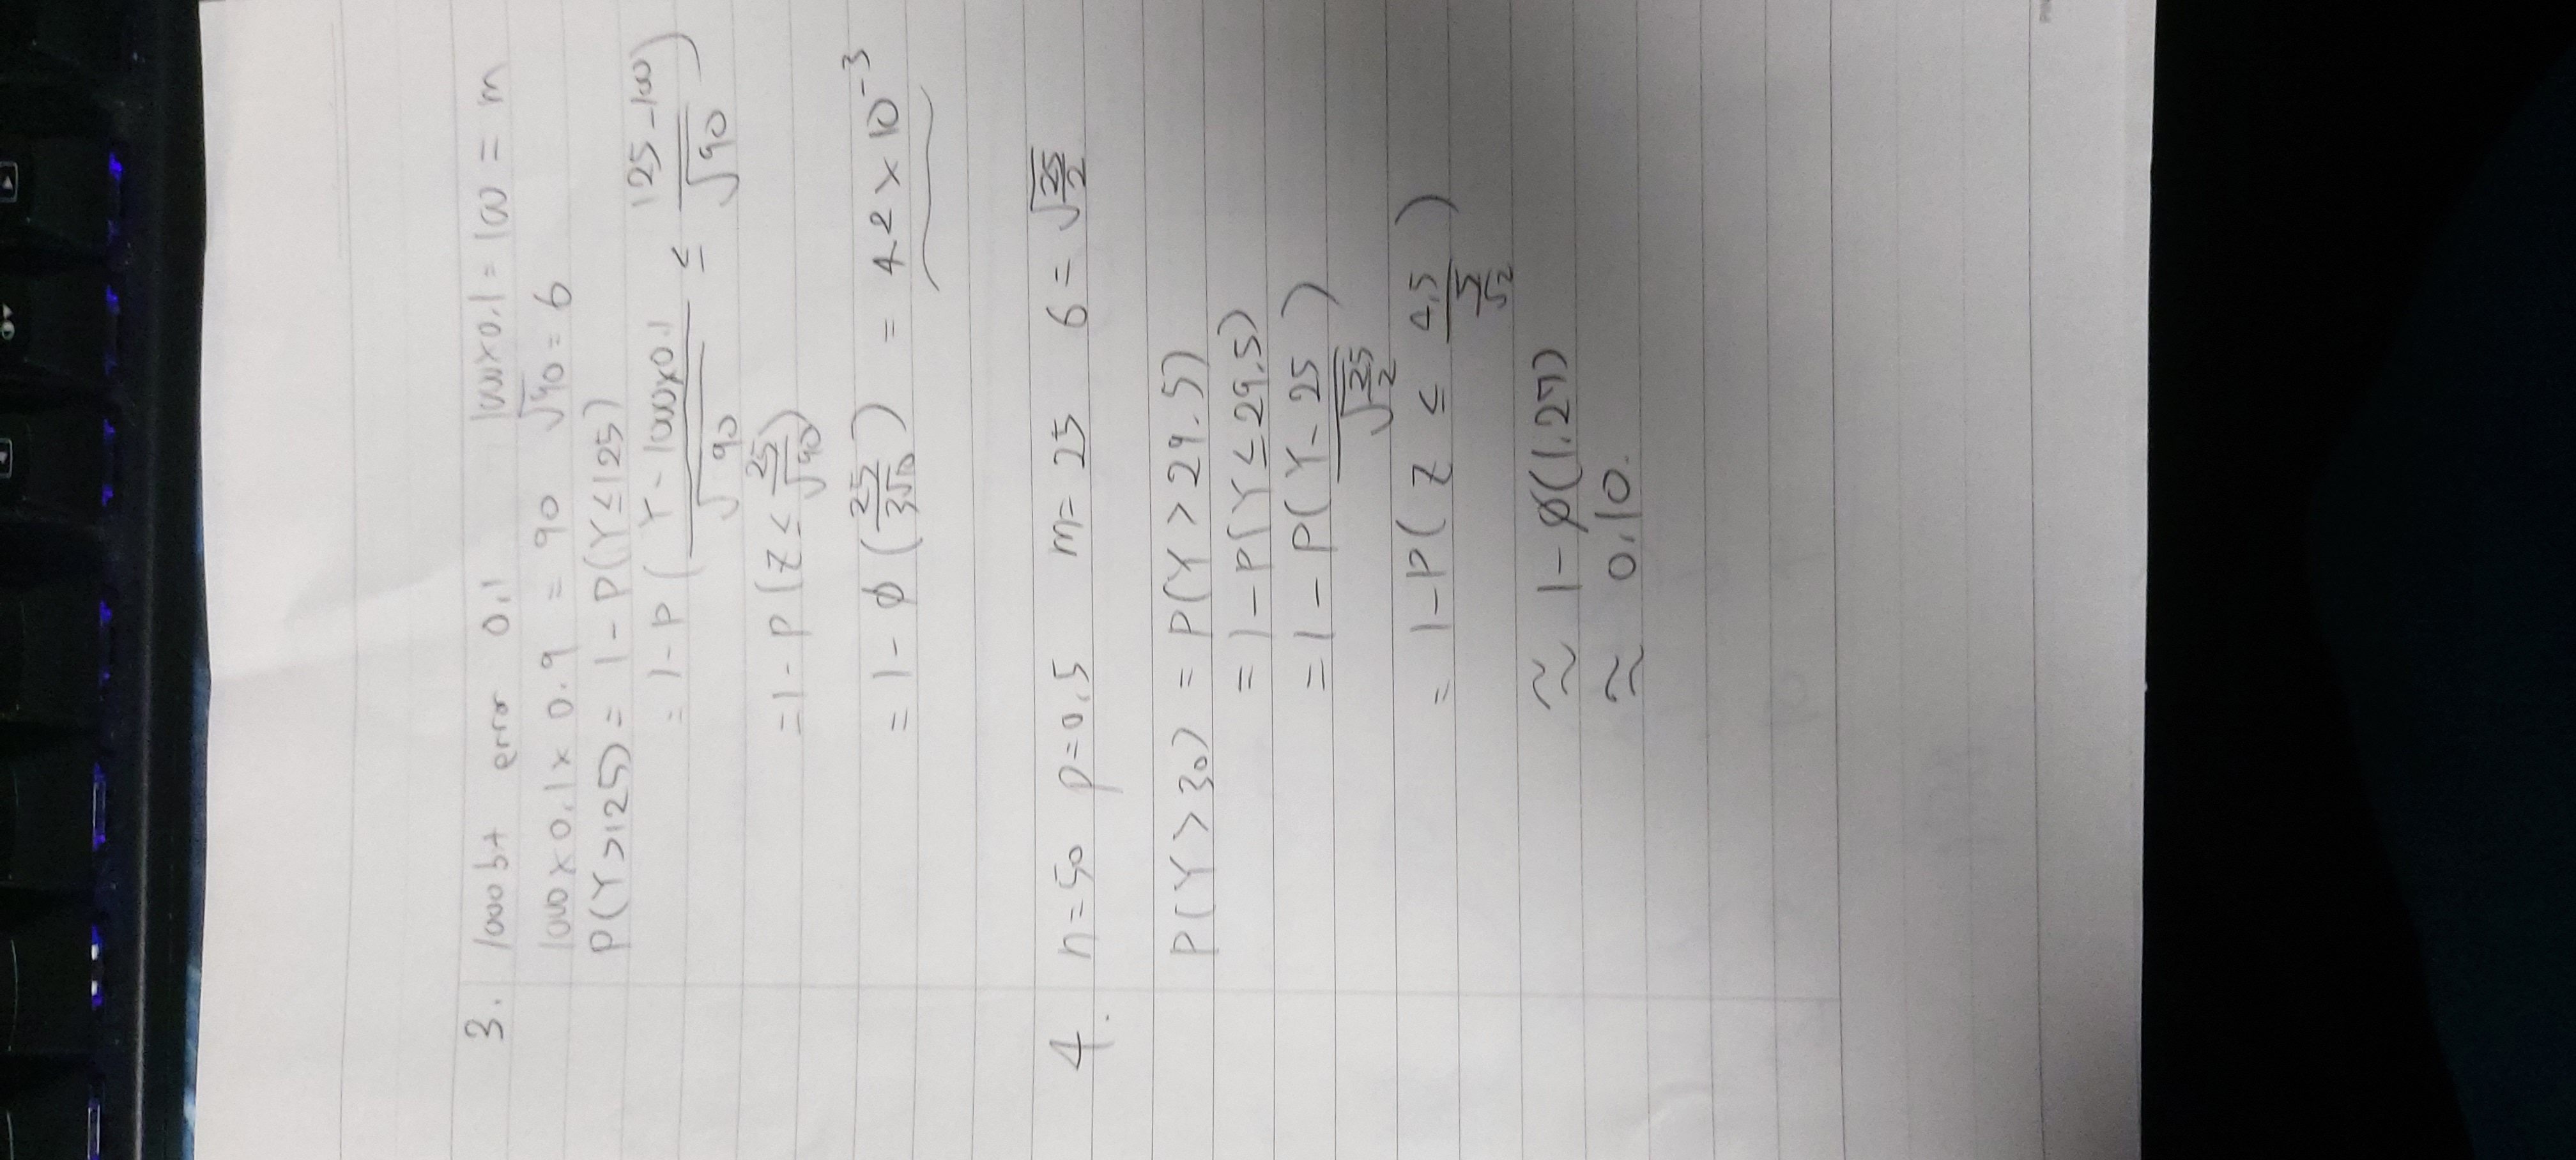 3. 1000 bt error 0.1 1000×0.1 = 100 = m
1000×0.1×0.9 = 90 √90 = 6
P(Y>125) = 1-P(Y≤125)
= 1-P( (Y-1000×0.1)/√90 ≤ (125-100)/√90 )
= 1-P(Z≤ 25/√90)
= 1-ϕ(25/3√10) = 4.2×10⁻³
4. n=50 p=0.5 m=25 6=√(25/2)
P(Y>30) = P(Y>29.5)
= 1-P(Y≤29.5)
= 1-P( (Y-25)/√(25/2) )
= 1-P( Z ≤ 4.5/(5/√2) )
≈ 1-ϕ(1.27)
≈ 0.10.